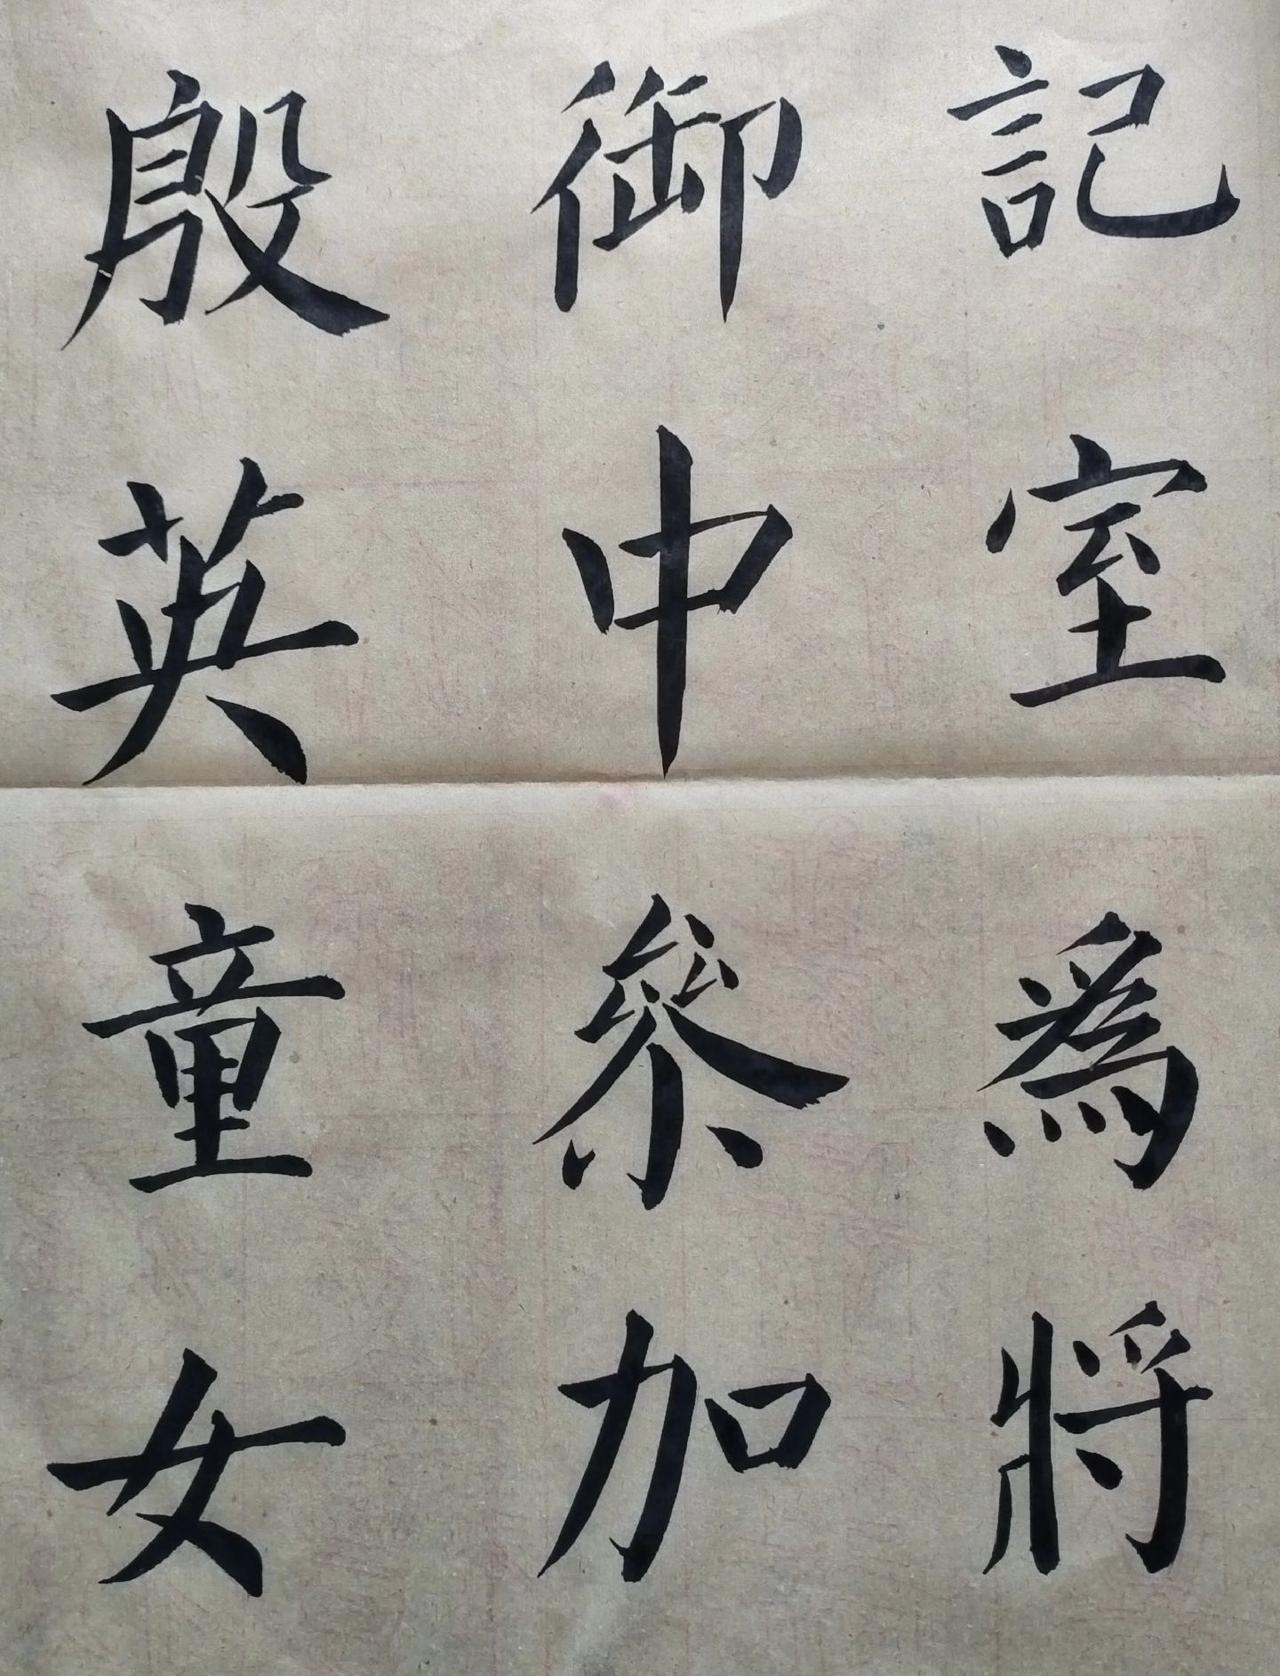 記室爲將
御中參加
殷英童女